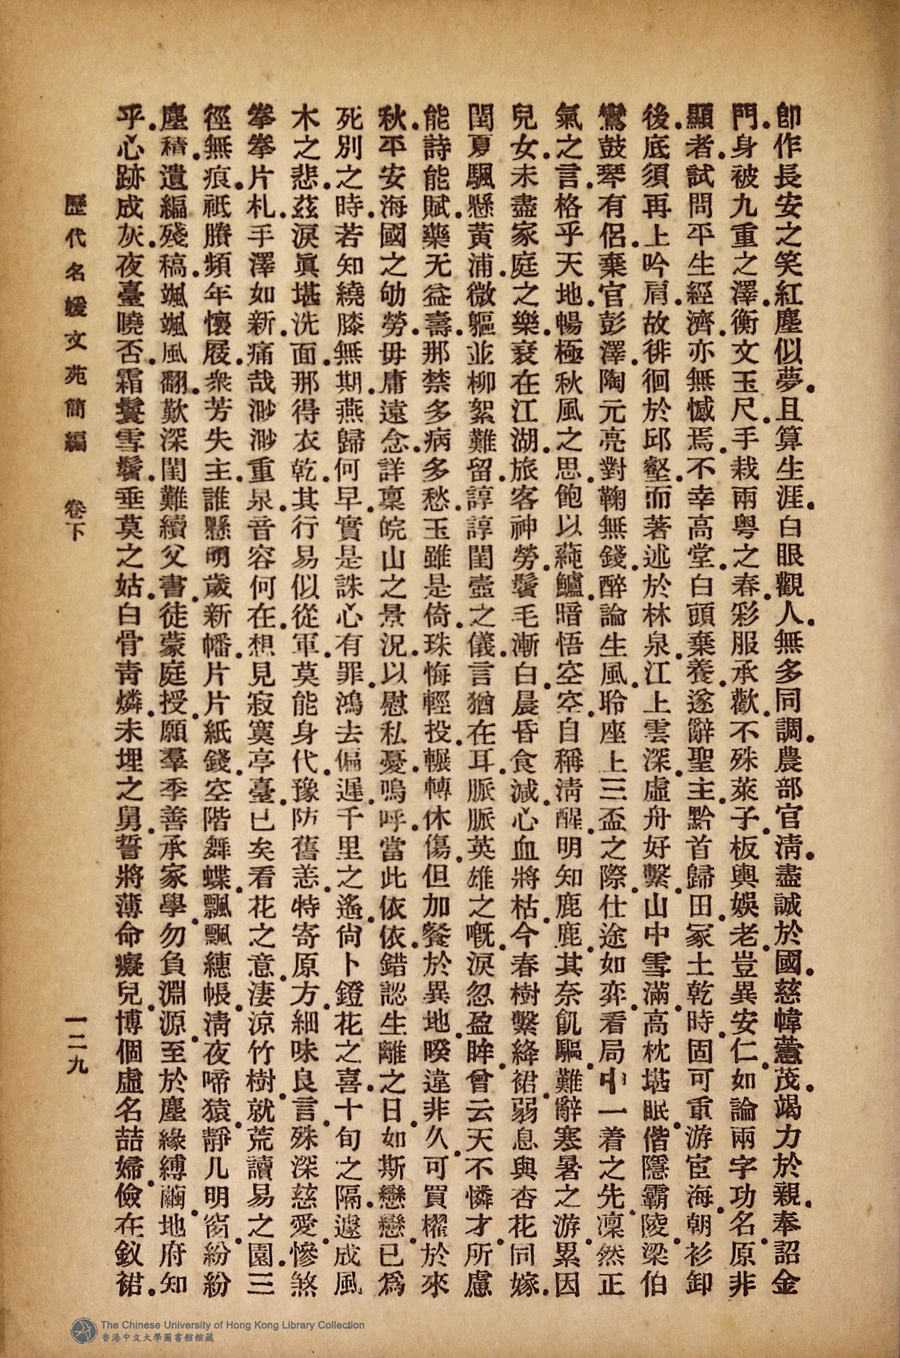 卽作長安之笑紅塵似夢。且算生涯。白眼觀人。無多同調。農部官淸。盡誠於國。慈幃薹茂。竭力於親。奉詔金
門。身被九重之澤。衡文玉尺。手栽兩粤之春。彩服承歡。不殊萊子。板輿娛老。豈異安仁。如論兩字功名。原非
顯者。試問平生經濟。亦無憾焉。不幸高堂。白頭棄養。遂辭聖主。黔首歸田。冢土乾時。固可重游宦海。朝衫卸
後。底須再上吟肩。故徘徊於邱壑。而著述於林泉。江上雲深。虛舟好繫。山中雪滿。高枕堪眠。偕隱霸陵。梁伯
鸞鼓琴有侶。棄官彭澤。陶元亮對鞠無錢。醉論生風。聆座上三盃之際。仕途如弈。看局中一着之先。凜然正
氣之言。格乎天地。暢極秋風之思。飽以蒓鱸。暗悟空空。自稱淸醒。明知鹿鹿。其奈飢驅。難辭寒暑之游。累因
兒女。未盡家庭之樂。衰在江湖。旅客神勞。鬢毛漸白。晨昏食減。心血將枯。今春樹繫絳裙。弱息與杏花同嫁。
閏夏颿懸黃浦。微軀並柳絮難留。諄諄閨壼之儀。言猶在耳。脈脈英雄之嘅。淚忽盈眸。曾云天不憐才。所慮
能詩能賦。藥无益壽。那禁多病多愁。玉雖是倚。珠悔輕投。輾轉休傷。但加餐於異地。暌違非久。可買櫂於來
秋。平安海國之劬勞。毋庸遠念。詳稟皖山之景況。以慰私憂。嗚呼。當此依依。錯認生離之日。如斯戀戀。已爲
死別之時。若知繞膝無期。燕歸何早。實是誅心有罪。鴻去偏遲。千里之遙。尙卜鐙花之喜。十旬之隔。遽成風
木之悲。茲淚眞堪洗面。那得衣乾。其行易似從軍。莫能身代。豫防舊恙。特寄原方。細味良言。殊深慈愛。慘煞
拳拳片札。手澤如新。痛哉渺渺重泉。音容何在。想見寂寞亭臺。已矣看花之意。淒涼竹樹。就荒讀易之園。三
徑無痕。祇賸頻年懷屐。衆芳失主。誰懸明歲新幡。片片紙錢。空階舞蝶。飄飄繐帳。淸夜啼猿。靜几明窗。紛紛
塵積。遺編殘稿。颯颯風翻。歎深閨難續父書。徒蒙庭授。願羣季善承家學。勿負淵源。至於塵緣縛繭。地府知
乎。心跡成灰。夜臺曉否。霜鬢雪鬢。垂莫之姑。白骨靑燐。未埋之舅。誓將薄命癡兒。博個虛名喆婦。儉在釵裙。
歷代名媛文苑簡編 卷下 一二九
The Chinese University of Hong Kong Library Collection
香港中文大學圖書館館藏